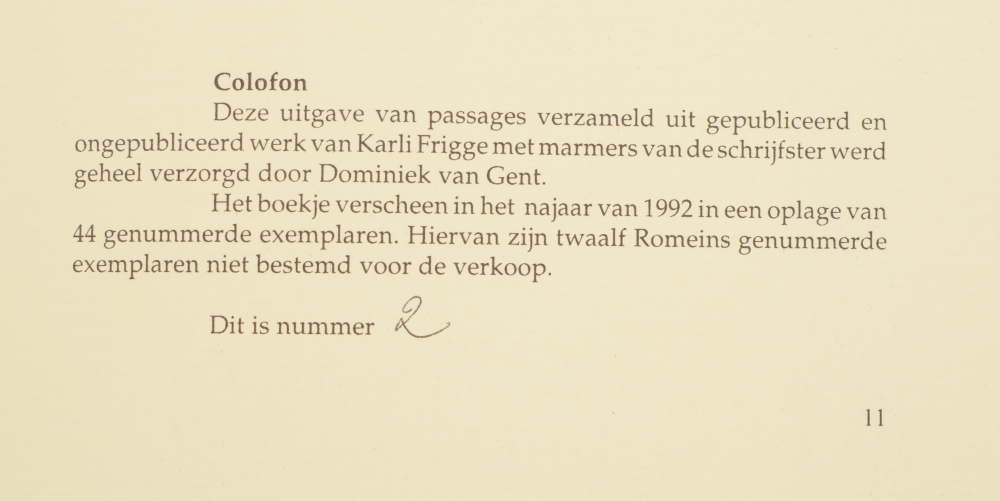 Colofon
Deze uitgave van passages verzameld uit gepubliceerd en
ongepubliceerd werk van Karli Frigge met marmers van de schrijfster werd
geheel verzorgd door Dominiek van Gent.
Het boekje verscheen in het najaar van 1992 in een oplage van
44 genummerde exemplaren. Hiervan zijn twaalf Romeins genummerde
exemplaren niet bestemd voor de verkoop.
Dit is nummer 2
11